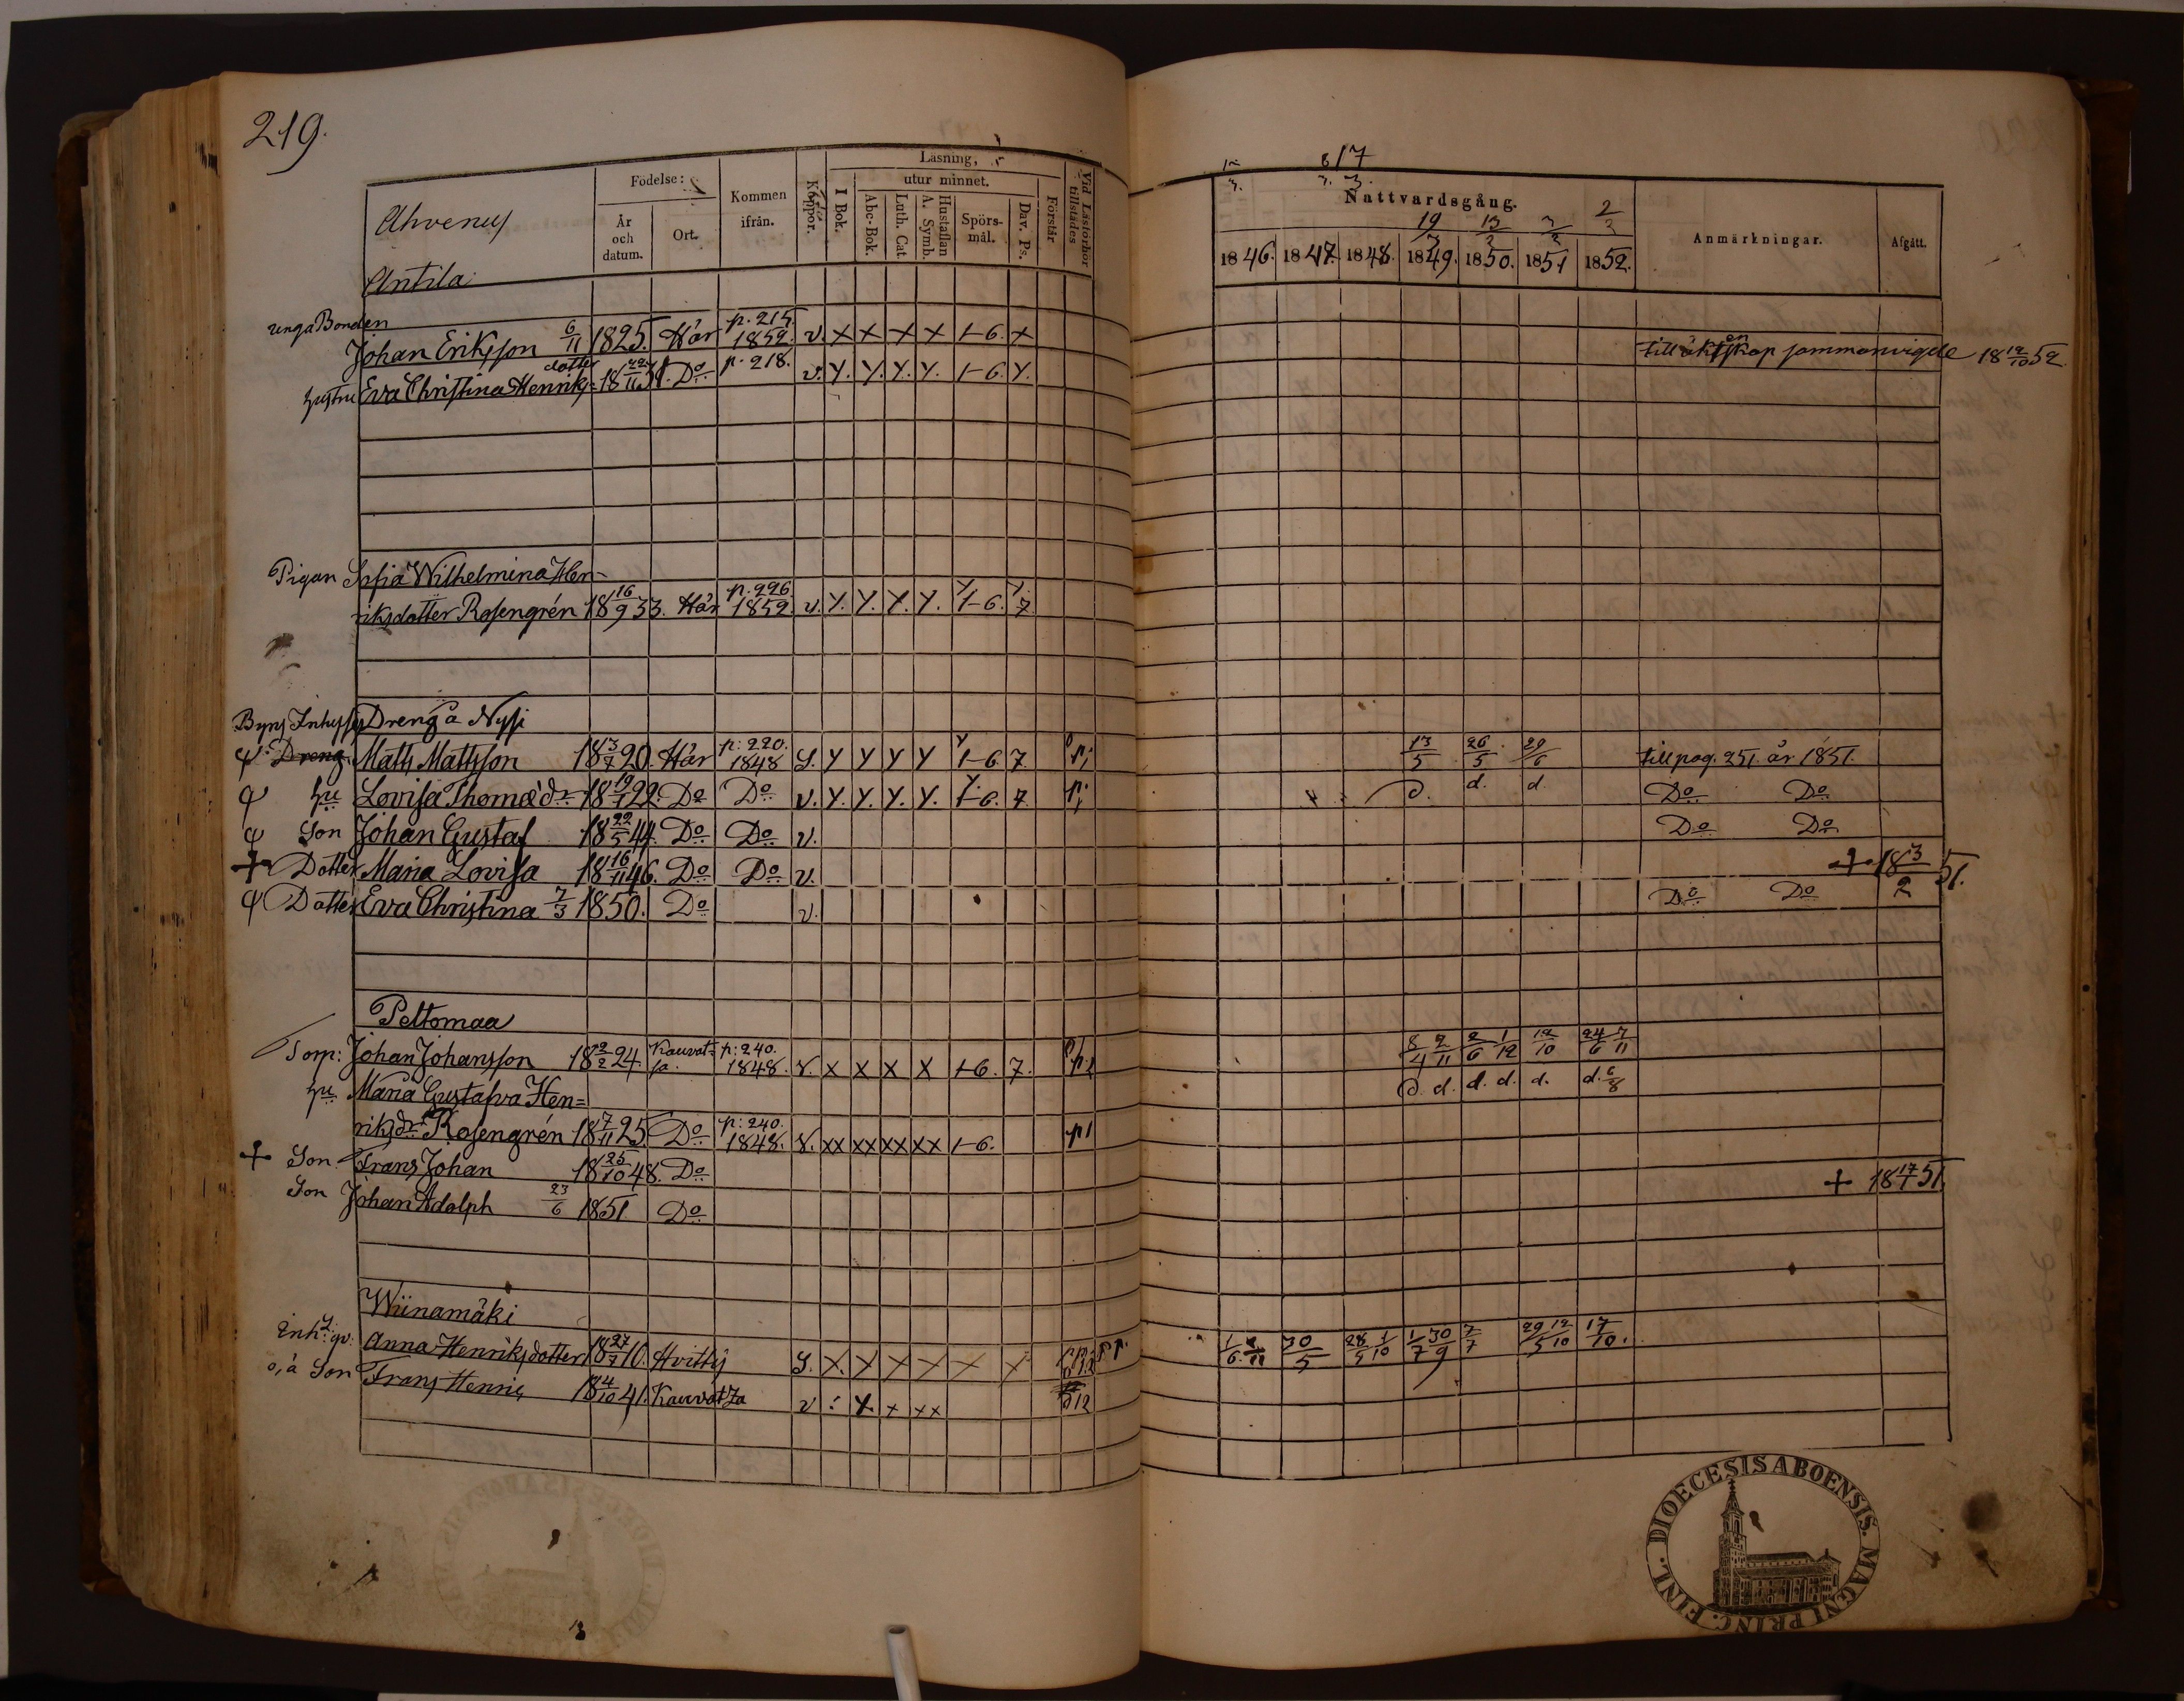 219.
Ahvenus
Födelse:
År och datum.
Ort.
Kommen ifrån.
Koppor.
Läsning,
I Bok.
utur minnet.
Abc-Bok.
Luth. Cat.
Hustaflan A. Symb.
Spörs-mål.
Dav. Ps.
Förstår
Vid Läsförhör tillstädes
17
3.
Nattvardsgång.
19/3 13/2 3/2 2/3
1846. 1847. 1848. 1849. 1850. 1851 1852.
Anmärkningar.
Afgått.
Antila
unga Bonden
Johan Eriksson 6/11 1825. Här p. 215. 1852. v. X X X X 1-6. X
till äktenskap sammanvigde 18 12/10 52.
hustru Eva Christina Henriks= dotter 18 22/11 31. Do p. 218. v. Y. Y. Y. Y. 1-6. Y.
Pigan Sofia Wilhelmina Hen-
riksdotter Rosengrén 18 16/9 33. Här p. 226 1852 v. Y. Y. Y. Y. 1-6. 7.
Byns Inhyses Dreng a Nysi
Dreng Matts Mattsson 18 3/7 20. Här p: 220. 1848 S. Y Y Y Y 1-6 7. 13/5 26/5 29/6 till pag. 251. år 1851.
hu Lovisa Thomædr 18 19/1 22. Do Do v. Y. Y. Y. Y. 1-6. 7. d. d. d. Do Do
Son Johan Gustaf 18 22/5 44. Do Do v. Do Do
+ Dotter Maria Lovisa 18 16/11 46. Do Do v. + 18 3/2 51.
Dotter Eva Christina 7/3 1850. Do v. Do Do
Peltomaa
Torp: Johan Johansson 18 2/2 24. Kauvat=sa. p: 240. 1848. v. X X X X 1-6. 7. 8/4 2/11 2/6 1/12 12/10 24/6 7/11
hu Maria Gustafva Hen= d. d. d. d. d. d. 6/8
riksdr Rosengrén 18 7/11 25. Do p: 240. 1848. v. XX XX XX XX 1-6. p1
+ Son Frans Johan 18 25/10 48. Do + 18 17/1 51.
Son Johan Adolph 23/6 1851 Do
Wiinamäki
Inh: qv: Anna Henriksdotter 18 27/7 10. Hvittis S. X. X X X X X 1/6 2/11 30/5 28/5 1/10 1/7 30/9 7/7 29/5 12/10 17/10.
o, ä Son Frans Henric 18 4/10 41. Kauvatza v : X. x xx
FINL. DIOECESIS ABOENSIS. MAGNI PRINC.